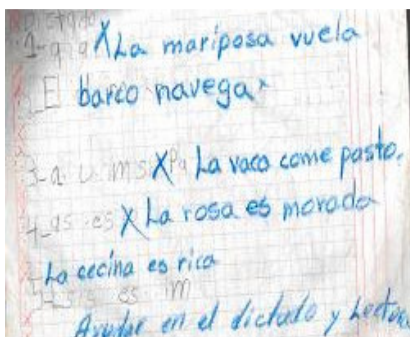 Dictado
1- a i a X La mariposa vuela
El barco navega
3- a u m s X Pa La vaca come pasto.
4- as es X La rosa es morada
La cecina es rica
es m
Ayudar en el dictado y Lectura